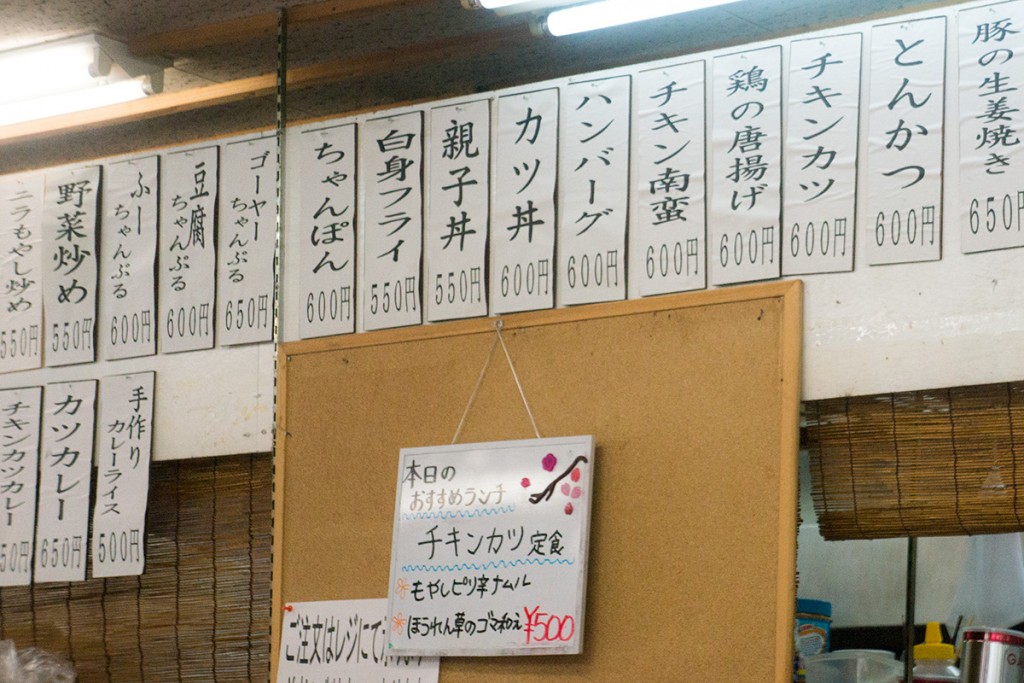 豚の生姜焼き 650円
とんかつ 600円
チキンカツ 600円
鶏の唐揚げ 600円
チキン南蛮 600円
ハンバーグ 600円
カツ丼 600円
親子丼 550円
白身フライ 550円
ちゃんぽん 600円
ゴーヤーちゃんぷる 650円
豆腐ちゃんぷる 600円
ふーちゃんぷる 600円
野菜炒め 550円
ニラもやし炒め 550円
手作りカレーライス 500円
カツカレー 650円
チキンカツカレー 50円
本日の
おすすめランチ
チキンカツ定食
もやしピリ辛ナムル
ほうれん草のゴマ和え ¥500
ご注文はレジにて